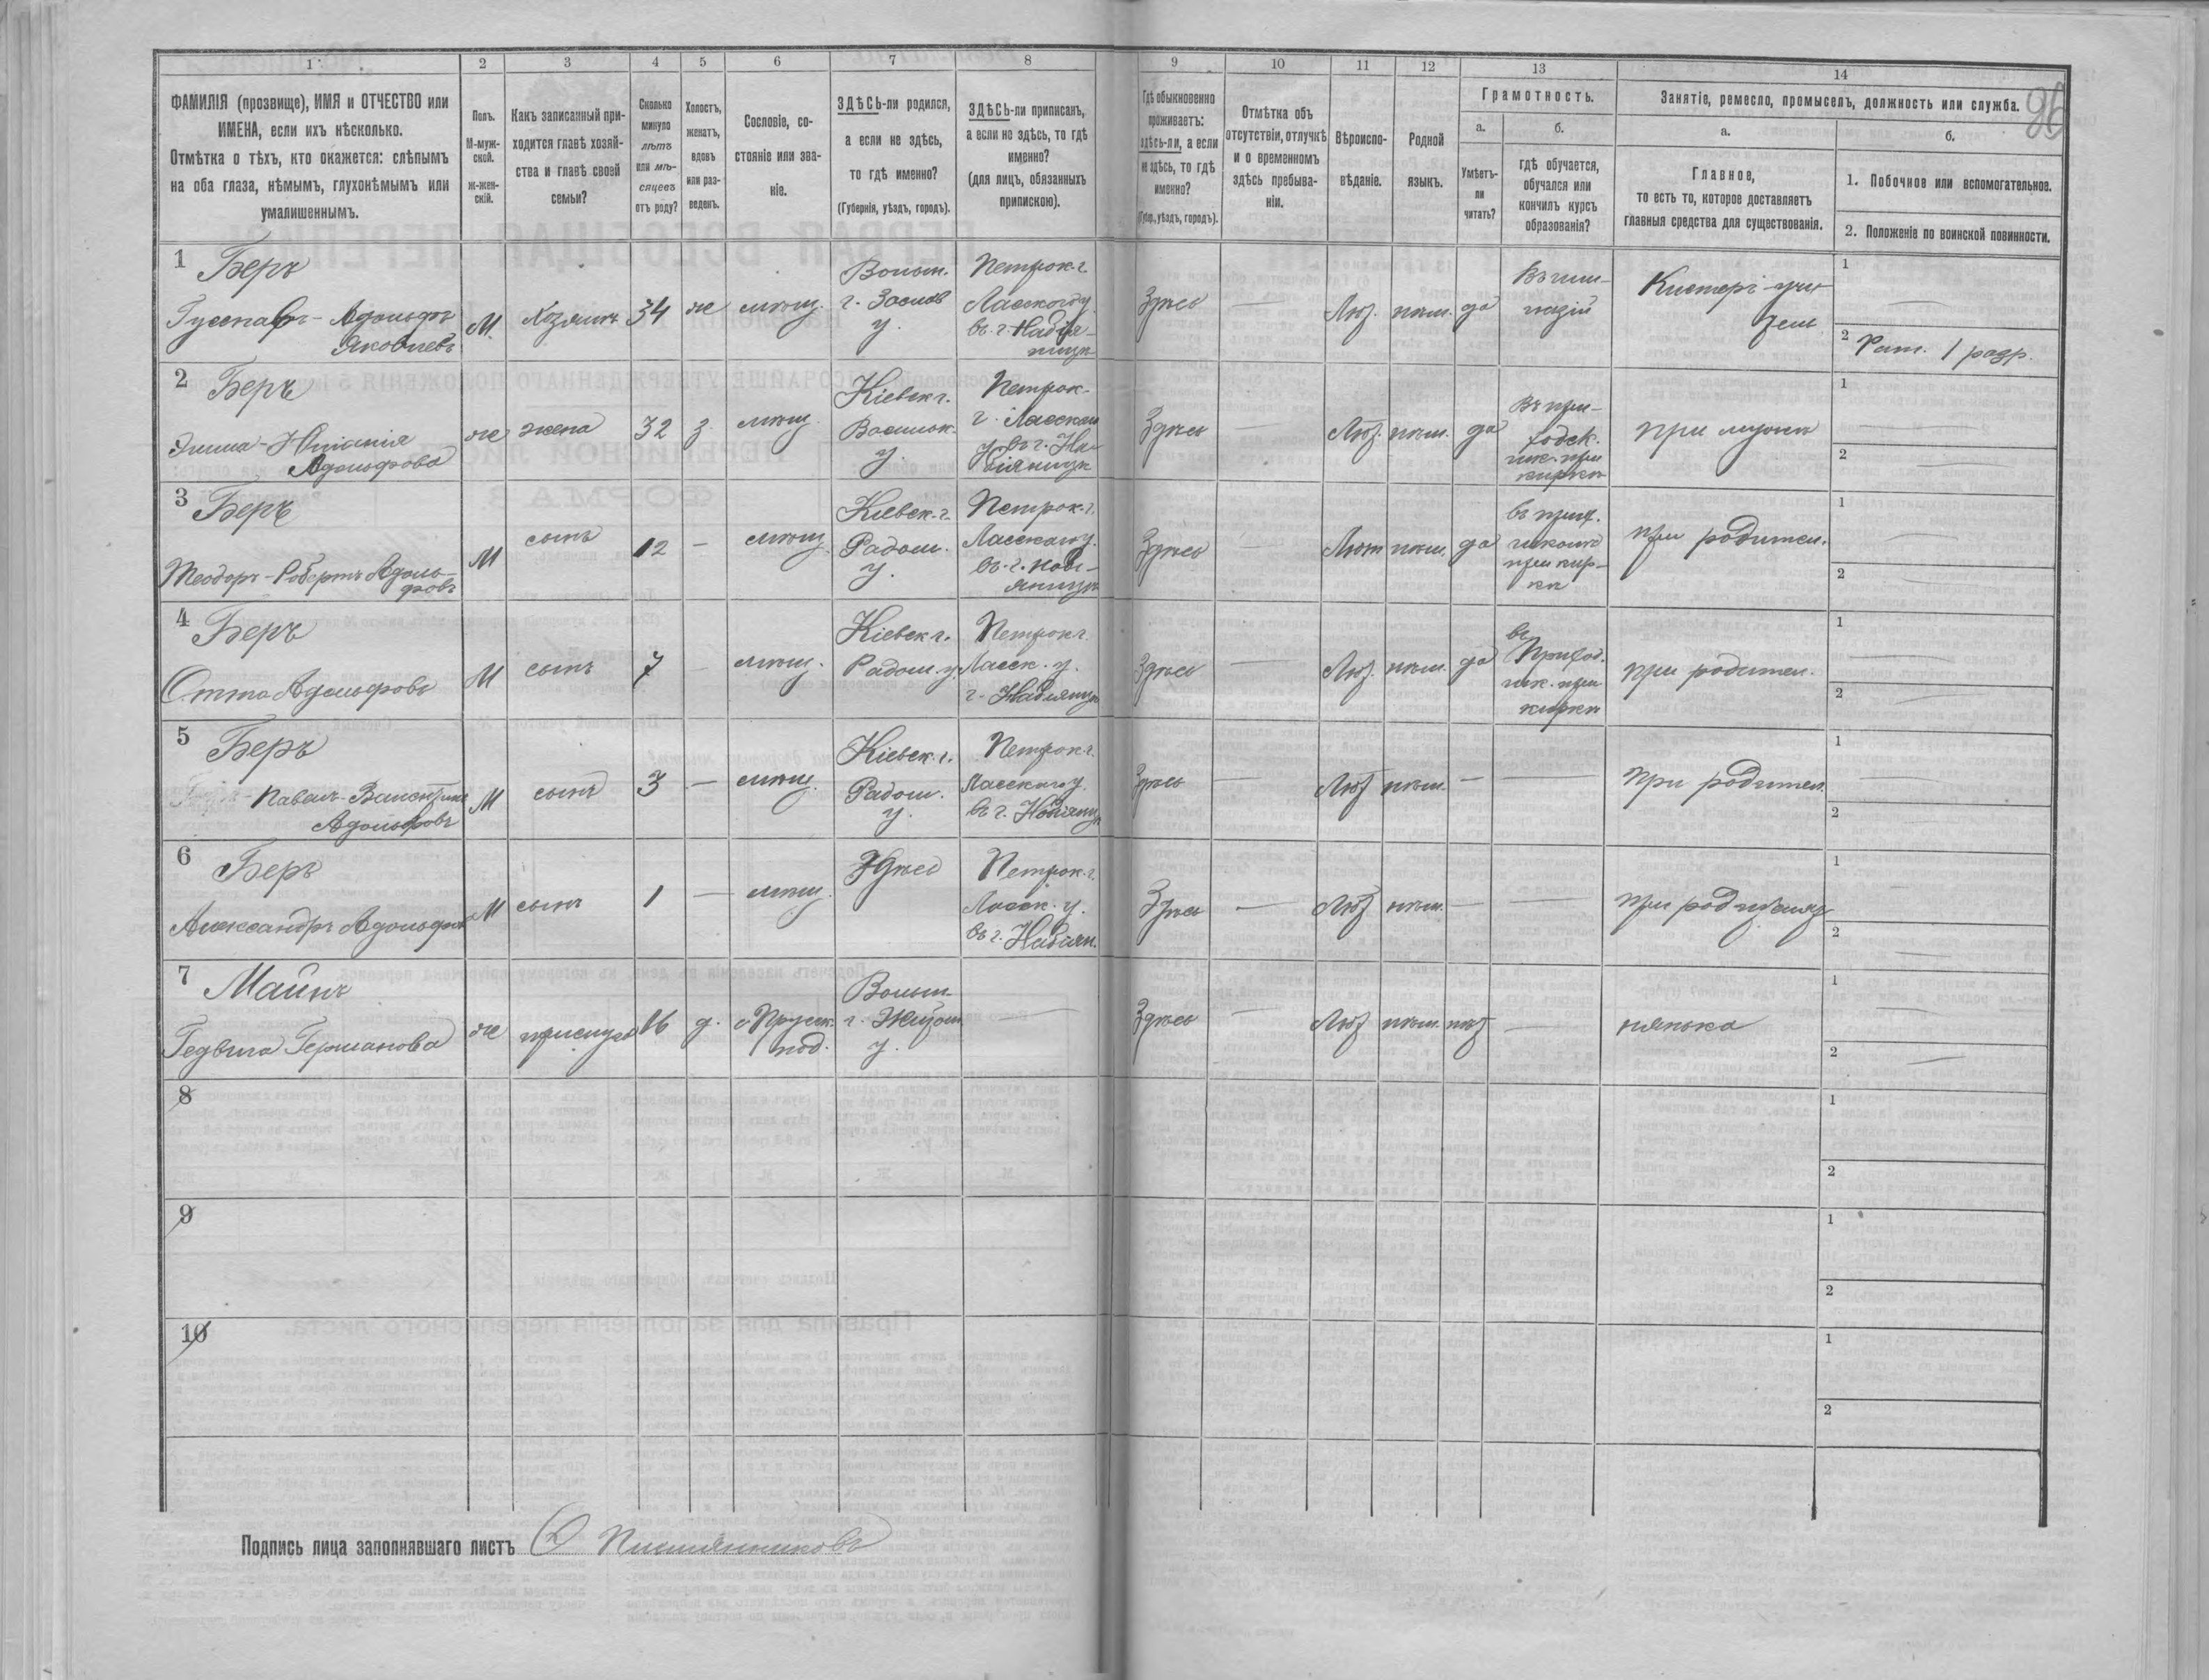 1 2 3 4 5 6 7 8 9 10 11 12 13 14
96
ФАМИЛІЯ (прозвище), ИМЯ и ОТЧЕСТВО или
ИМЕНА, если ихъ нѣсколько.
Отмѣтка о тѣхъ, кто окажется: слѣпымъ
на оба глаза, нѣмымъ, глухонѣмымъ или
умалишеннымъ.
Полъ.
М-муж-
ской.
ж-жен-
скій.
Какъ записанный при-
ходится главѣ хозяй-
ства и главѣ своей
семьи?
Сколько
минуло
лѣтъ
или мѣ-
сяцевъ
отъ роду?
Холостъ,
женатъ,
вдовъ
или раз-
веденъ.
Сословіе, со-
стояніе или зва-
ніе.
ЗДѢСЬ-ли родился,
а если не здѣсь,
то гдѣ именно?
(Губернія, уѣздъ, городъ).
ЗДѢСЬ-ли приписанъ,
а если не здѣсь, то гдѣ
именно?
(для лицъ, обязанныхъ
припискою).
Гдѣ обыкновенно
проживаетъ:
здѣсь-ли, а если
не здѣсь, то гдѣ
именно?
(Губер., уѣздъ, городъ).
Отмѣтка объ
отсутствіи, отлучкѣ
и о временномъ
здѣсь пребыва-
ніи.
Вѣроиспо-
вѣданіе.
Родной
языкъ.
Грамотность.
а.
Умѣетъ-
ли
читать?
б.
гдѣ обучается,
обучался или
кончилъ курсъ
образованія?
Занятіе, ремесло, промыселъ, должность или служба.
а.
Главное,
то есть то, которое доставляетъ
главныя средства для существованія.
б.
1. Побочное или вспомогательное.
2. Положеніе по воинской повинности.
1 Беръ
Густавъ-Адольфъ
Яковлевъ
М
Хозяинъ
34
же
мѣщ.
Волын.
г. Заслав
у.
Петрок. г.
Ласкаго у.
въ г. Пабія-
ницѣ
Здѣсь
—
Лют.
нѣм.
да
Въ гим-
назіи
Кистеръ-учи
тель
1 —
2 Рат. 1 разр.
2 Беръ
Эмма-Юліанія
Адольфова
же
жена
32
з.
мѣщ.
Кіевск г.
Васильк.
у.
Петрок-
г. Ласскаго
у въ г. Па-
біяницѣ
Здѣсь
—
Лют.
нѣм.
да
Въ при-
ходск.
шк. при
киркѣ
при мужѣ
1
2
3 Беръ
Теодоръ-Робертъ Адоль-
фовъ
М
сынъ
12
—
мѣщ.
Кіевск. г.
Радом.
у.
Петрок. г.
Ласскаго у.
въ г. Паби-
яницѣ
Здѣсь
—
Лют
нѣм.
да
въ прих.
школѣ
при кир-
кѣ
при родител.
1
2
4 Беръ
Отто Адольфовъ
М
сынъ
7
—
мѣщ.
Кіевск г.
Радом. у.
Петрок г.
Ласск. у.
г. Пабіяницѣ
Здѣсь
—
Лют.
нѣм.
да
въ
Приход.
шк. при
киркѣ
при родител.
1
2
5 Беръ
Павелъ-Валентинъ
Адольфовъ
М
сынъ
3
—
мѣщ.
Кіевск. г.
Радом.
у.
Петрок г.
Ласскаго у.
въ г. Пабіяницѣ
Здѣсь
—
Лют
нѣм.
—
—
при родител.
1
2
6 Беръ
Александръ Адольфов
М
сынъ
1
—
мѣщ.
Здѣсь
Петрок. г.
Ласск. у.
въ г. Пабіян.
Здѣсь
—
Лют
нѣм.
—
—
при родителяхъ
1
2
7 Майнъ
Гедвига Германова
же
прислуга
16
д.
Прусск.
под.
Волын.
г. Житом
у.
—
Здѣсь
—
Лют
нѣм.
нѣт
—
нянька
1
2
8
1
2
9
1
2
10
1
2
Подпись лица заполнявшаго листъ